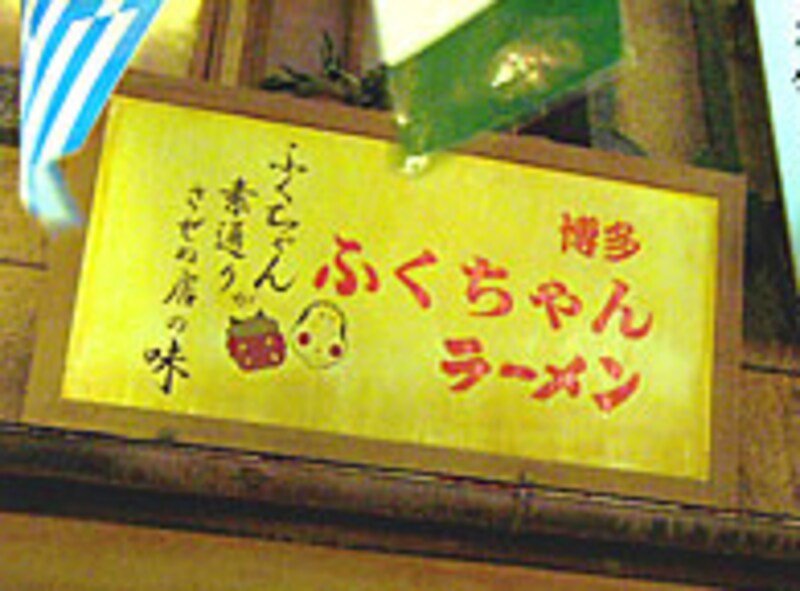 博多
ふくちゃん
ラーメン
ふくちゃん
素通りが
させぬ店の味